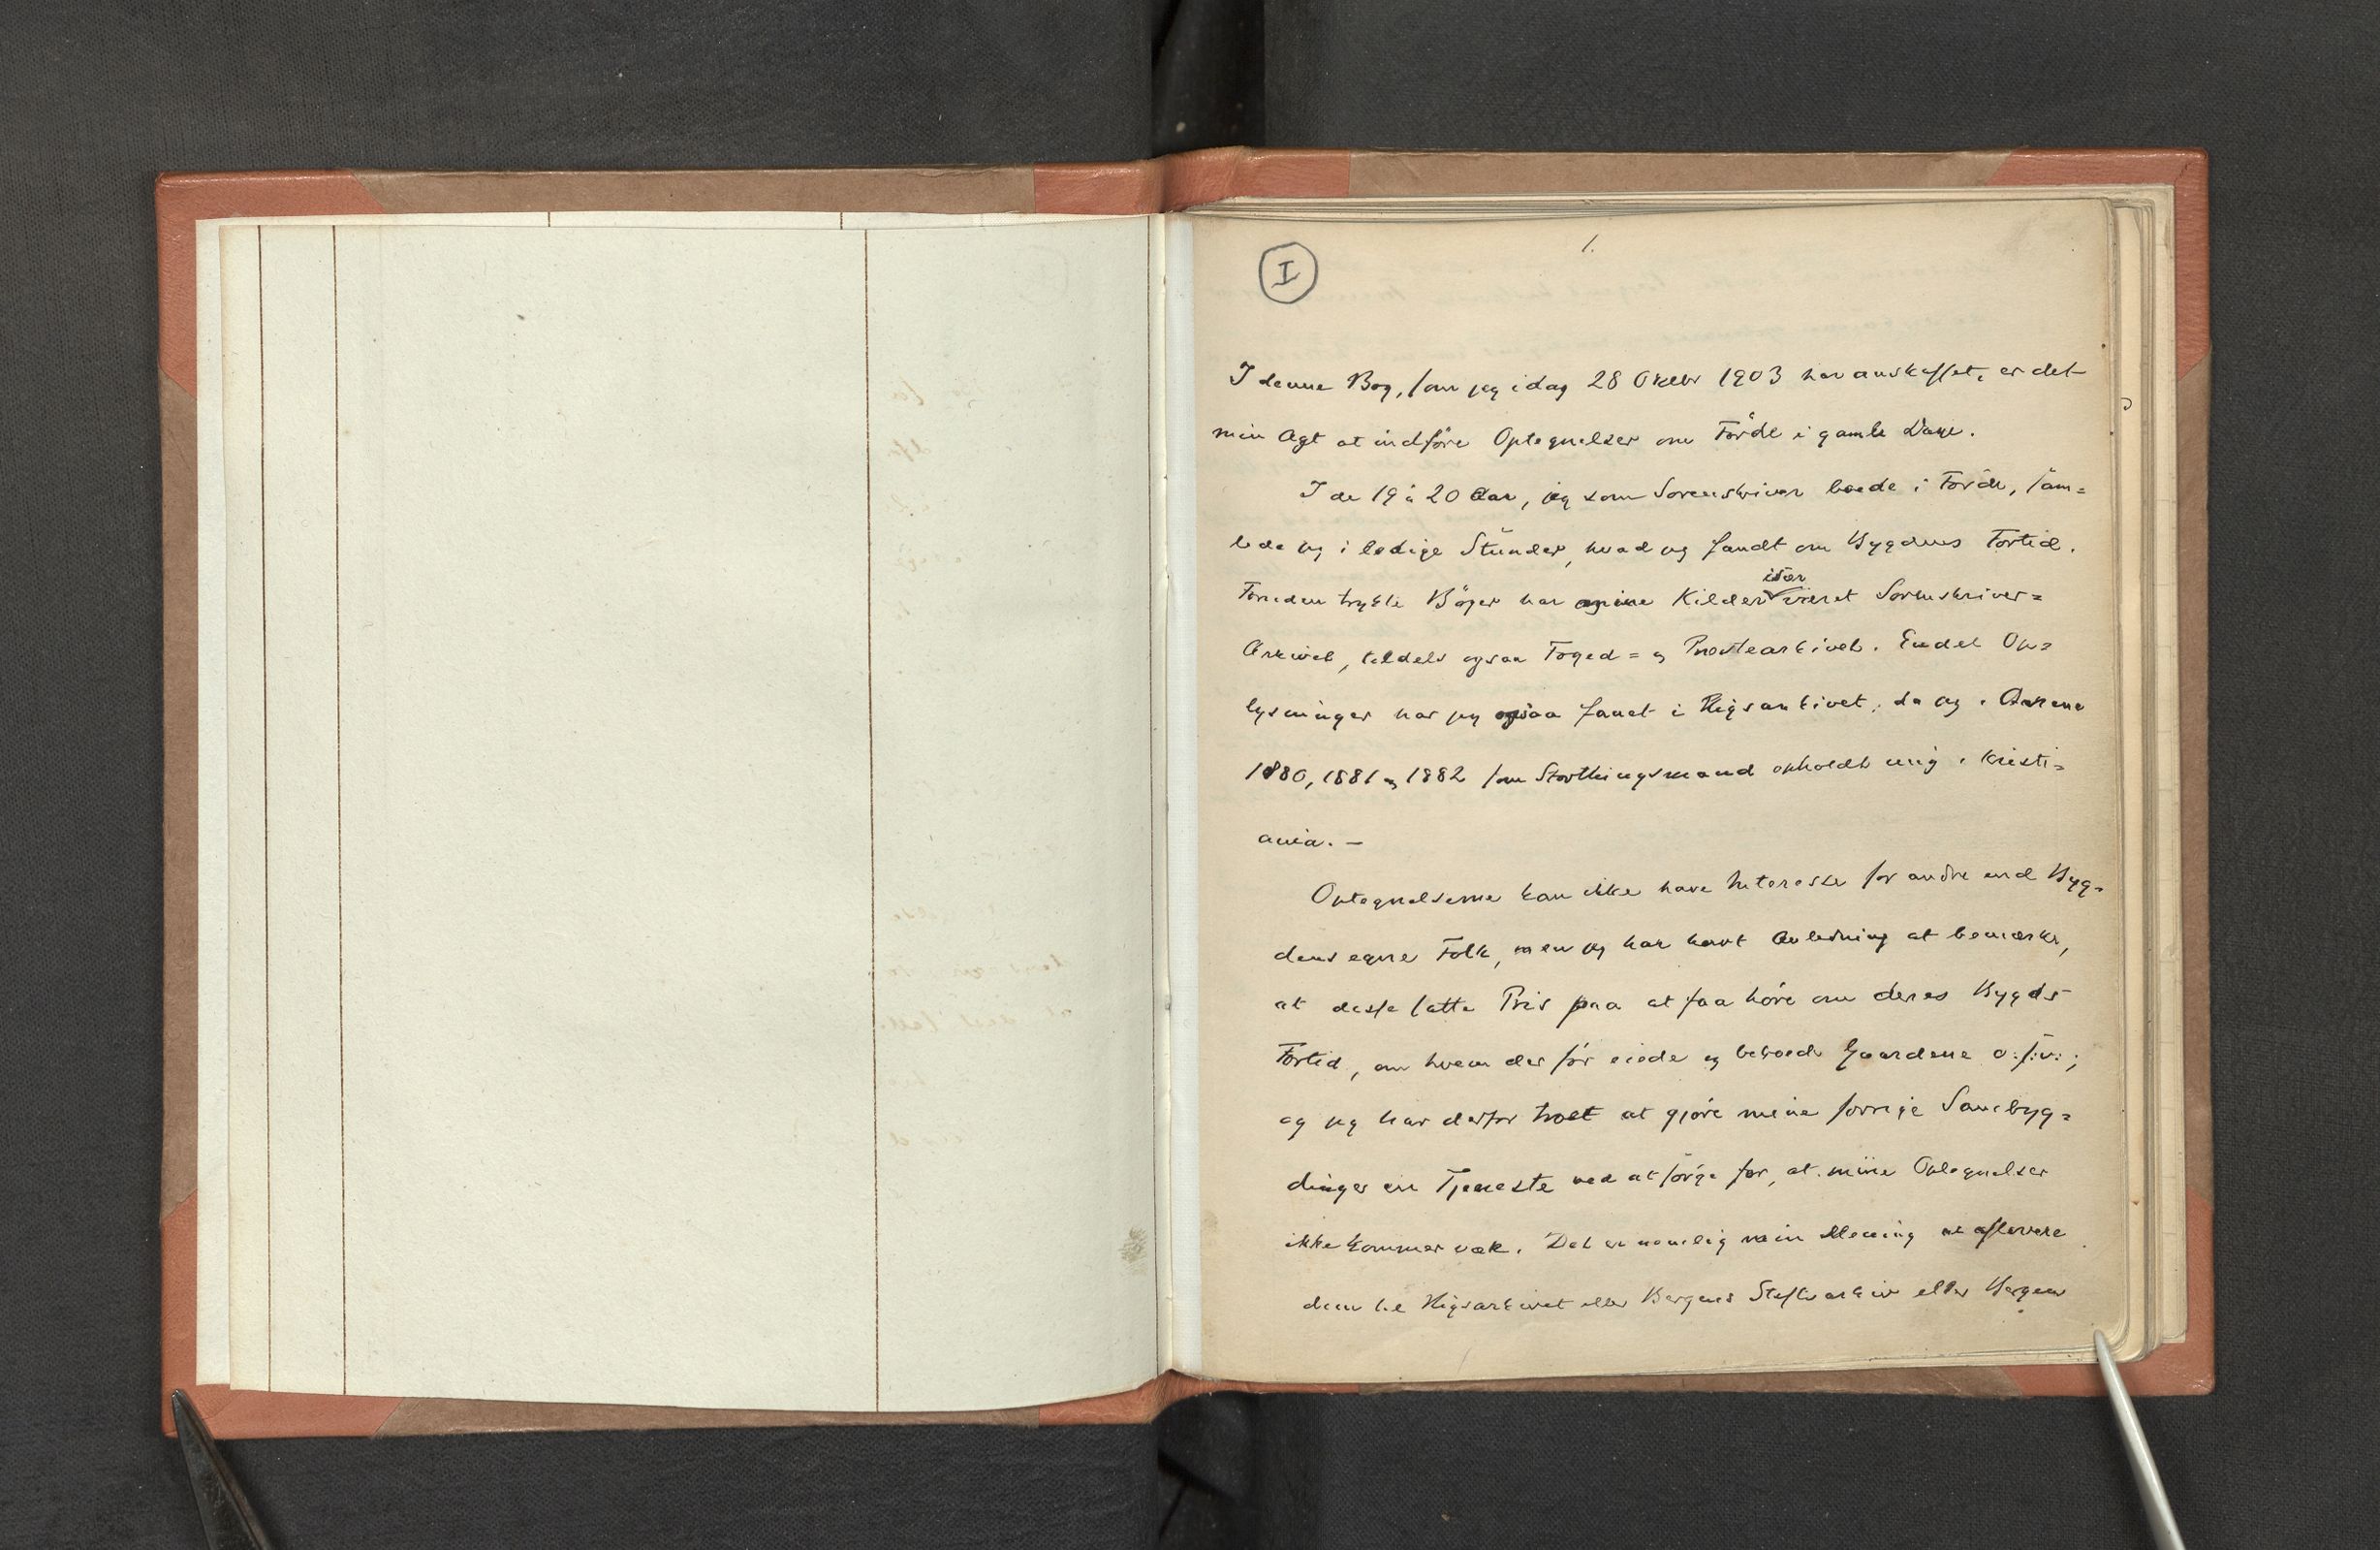 1.
I
I denne Bog, som jeg idag 28 Oktbr 1903 har anskaffet, er det
min Agt at indføre Optegnelser om Førde i gamle Dage.
I de 19 à 20 Aar, jeg som Sorenskriver boede i Førde, sam=
lede jeg i ledige Stunder, hvad jeg fandt om Bygdens Fortid.
Foruden trykte Bøger har mine Kilder især været Sorenskriver=
Arkivet, tildels ogsaa Foged= og Provstearkivet. Endel Op=
lysninger har jeg ogsaa fundet i Rigsarkivet, da jeg i Aarene
1880, 1881 og 1882 som Storthingsmand opholdt mig i Kristi=
ania. –
Optegnelserne kan ikke have Interesse for andre end Byg=
dens egne Folk, men jeg har havt Anledning at bemærke,
at disse satte Pris paa at faa høre om deres Bygds
Fortid, om hvem der før eiede og beboede Gaardene o:s:v:;
og jeg har derfor troet at gjøre mine forrige Sambyg=
dinger en Tjeneste ved at sørge for, at mine Optegnelser
ikke kommer væk. Det er nemlig min Mening at aflevere
dem til Rigsarkivet eller Bergens Stiftsarkiv eller Bergens